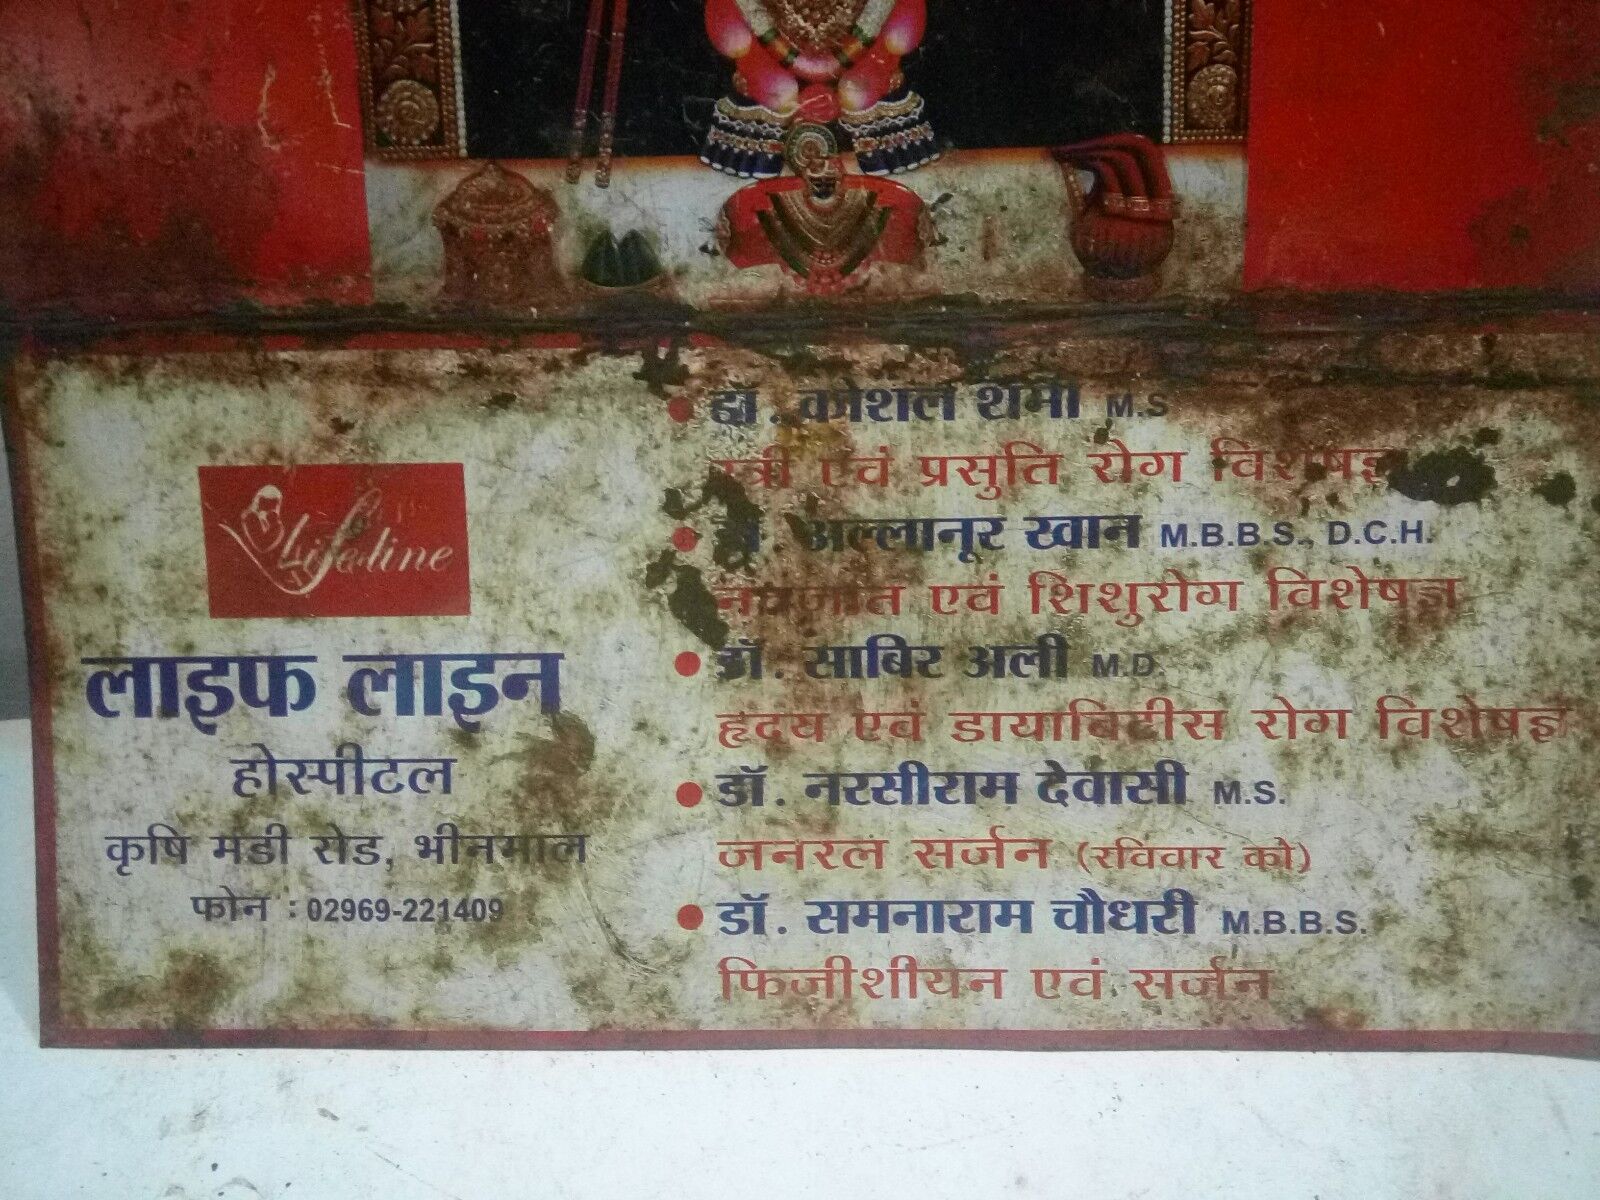 Lifeline
लाइफ लाइन
होस्पीटल
कृषि मडी रोड, भीनमाल
फोन : 02969-221409
डॉ. कोशल शर्मा M.S
स्त्री एवं प्रसुति रोग विशेषज्ञ
डॉ. अल्लानूर खान M.B.B.S., D.C.H.
नवजात एवं शिशुरोग विशेषज्ञ
डॉ. साबिर अली M.D.
हृदय एवं डायाबिटीस रोग विशेषज्ञ
डॉ. नरसीराम देवासी M.S.
जनरल सर्जन (रविवार को)
डॉ. समनाराम चौधरी M.B.B.S.
फिजीशीयन एवं सर्जन